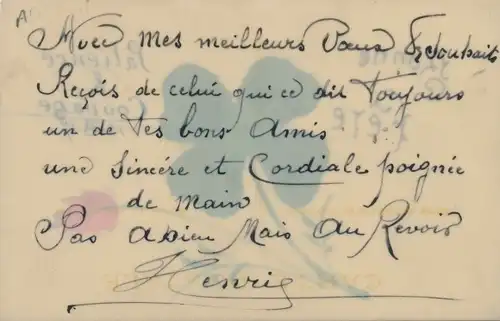 A.
Avec mes meilleurs Vœux & souhaits
Reçois de celui qui ce dit Toujours
un de tes bons Amis
une Sincére et Cordiale poignée
de main
Pas adieu Mais Au Revoir
Henri